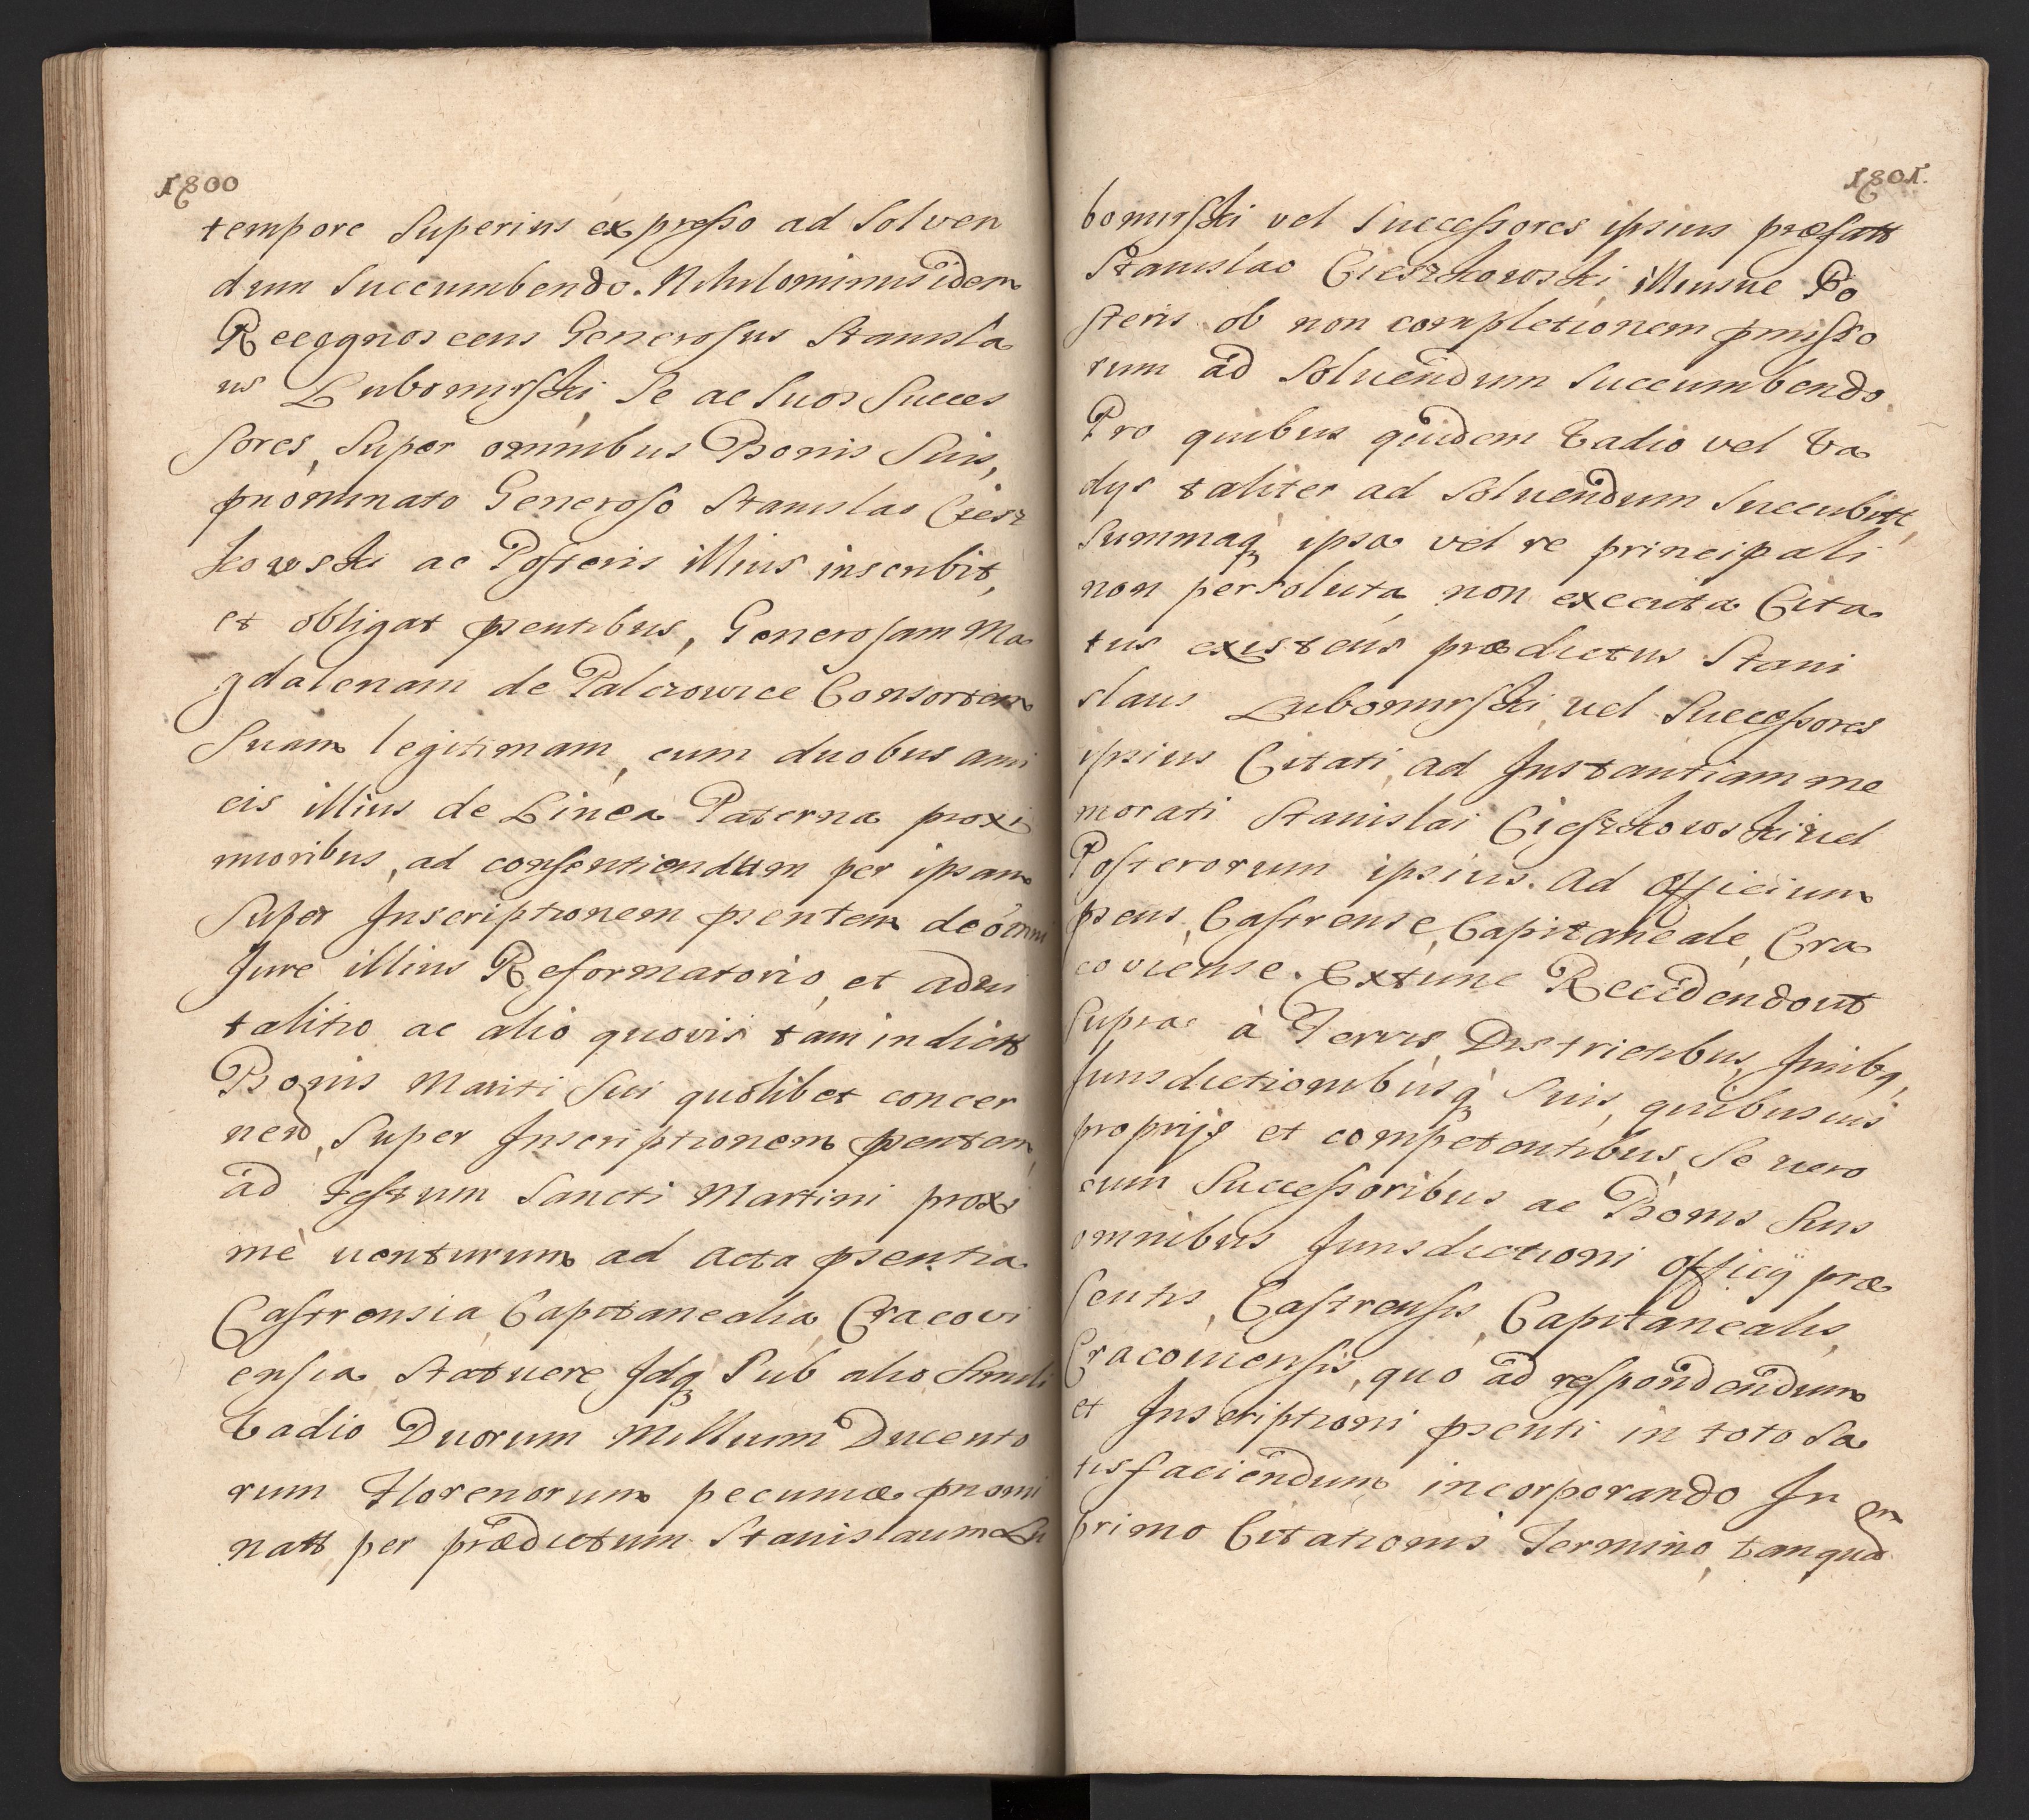 1800
tempore Superius expresso ad Solven
dum Succumbendo. Nihilominus idem
Recognoscens Generosus Stanisla
us Lubomirski, Se ac Suos Succes
sores, Super omnibus Bonis Suis,
pnominato Generoso Stanislao Ciesz
kowski ac Posteris illius inscribit,
et obligat psentibus, Generosam Ma
gdalenam de Palczowice Consortem
Suam legitimam, cum duobus ami
cis illius de Linea Paterna proxi
mioribus, ad consentiendum per ipsam
Super Inscriptionem psentem de omni
Jure illius Reformatorio, et advi
talitio ac alio quovis tam in dictt
Bonis Mariti Sui quolibet concer
nen, Super Inscriptionem psentem,
ad Festum Sancti Martini proxi
mè venturum ad Acta psentia
Castrensia, Capitanealia, Cracovi
ensia Statuere, Idq Sub alio Simili
Vadio Duorum Millium Ducento
rum Florenorum pecuniæ pnomi
natt per prædictum Stanislaum Lu
1801.
bomirski vel Successores ipsius præfatt
Stanislao Cieszkowski, illiusue Po
steris ob non completionem pmisso
rum ad Soluendum Succumbendo.
Pro quibus quidem Vadio vel Va
dys taliter ad Soluendum Succubitt,
Summaq ipsa vel re principali
non persoluta, non executa Cita
tus existens prædictus Stani
slaus Lubomirski, vel Successores
ipsius Citati, ad Instantiam me
morati Stanislai Cieszkowski vel
Posterorum ipsius. Ad Officium
psens, Castrense, Capitaneale, Cra
coviense. Extunc Recedendo ut
Supra à Terris, Districtibus, Juribq,
Jurisdictionibusq Suis, quibusuis
proprijs et competentibus, Se vero
cum Successoribus ac Bonis Suis
omnibus Jurisdictioni Officij præ
sentis, Castrensis, Capitanealis,
Cracoviensis, quo ad respondendum
et Inscriptioni psenti in toto Sa
tisfaciendum incorporando In
primo Citationis Termino, tanquam